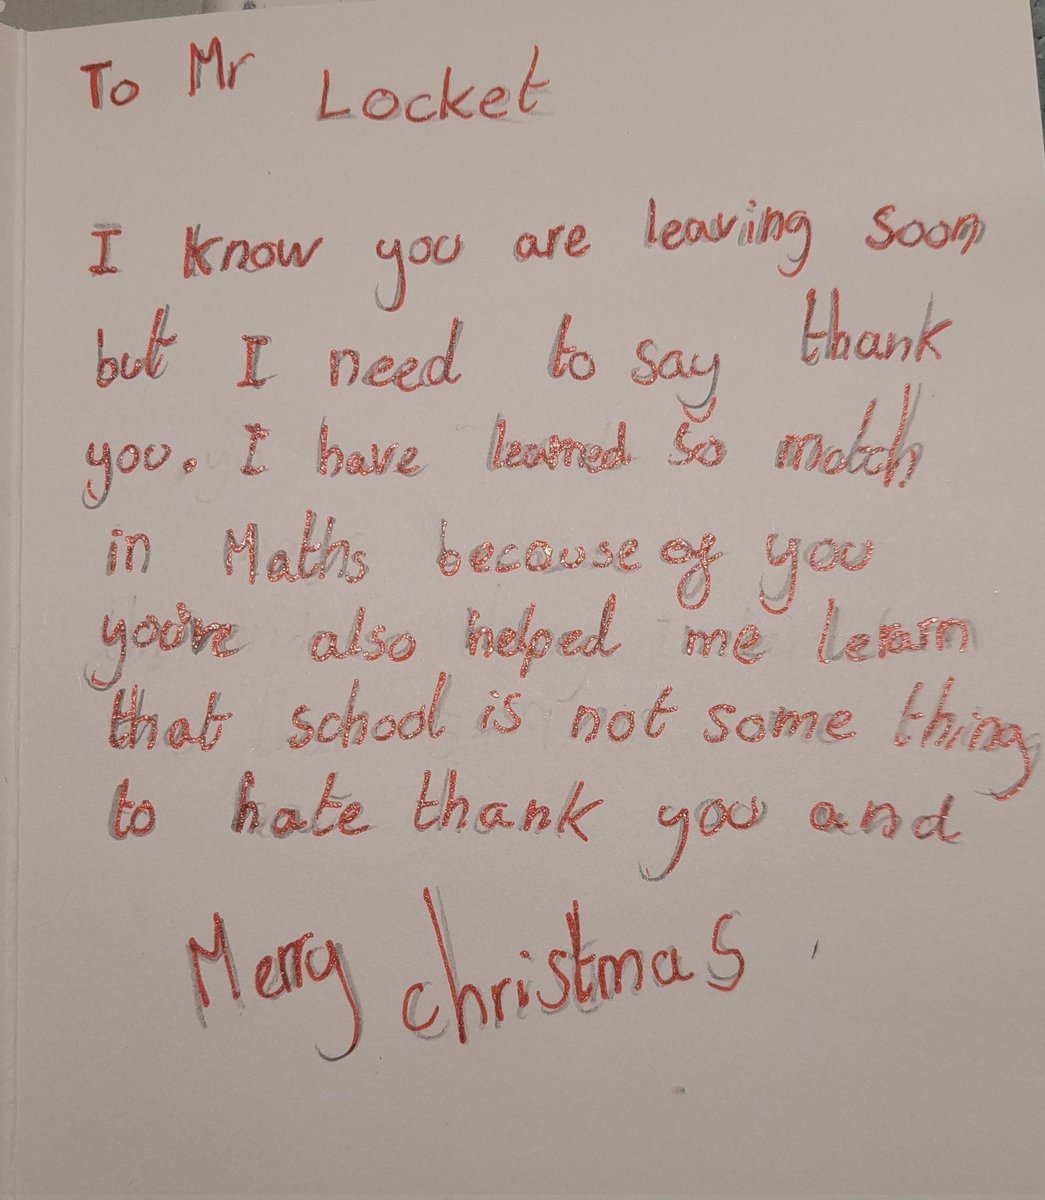 To Mr Locket
I know you are leaving soon
but I need to say thank
you. I have learned so match
in Maths because of you
you've also helped me learn
that school is not some thing
to hate thank you and
Merry christmas